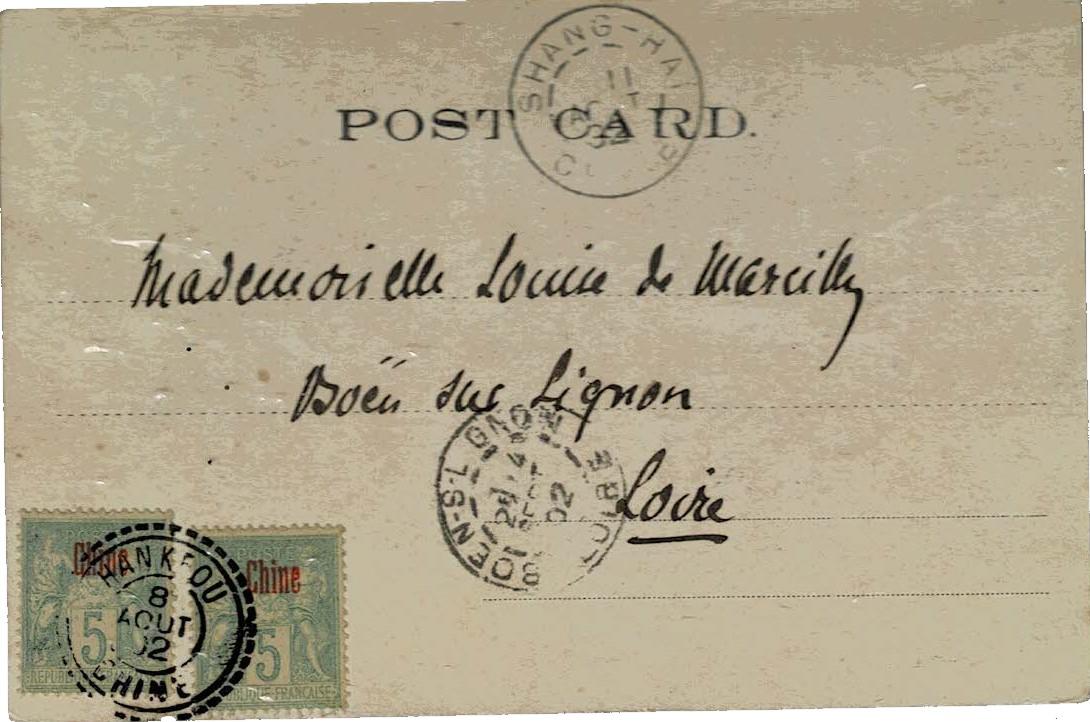 SHANG-HAI
11
AOUT
02
CHINE
POST CARD.
Mademoiselle Louise de Marcilly
Boën sur Lignon
Loire
BOEN-S-LIGNON
SEPT
02
LOIRE
Chine
5
REPUBLIQUE FRANCAISE
Chine
5
REPUBLIQUE-FRANÇAISE
HANKEOU
8
AOUT
02
CHINE